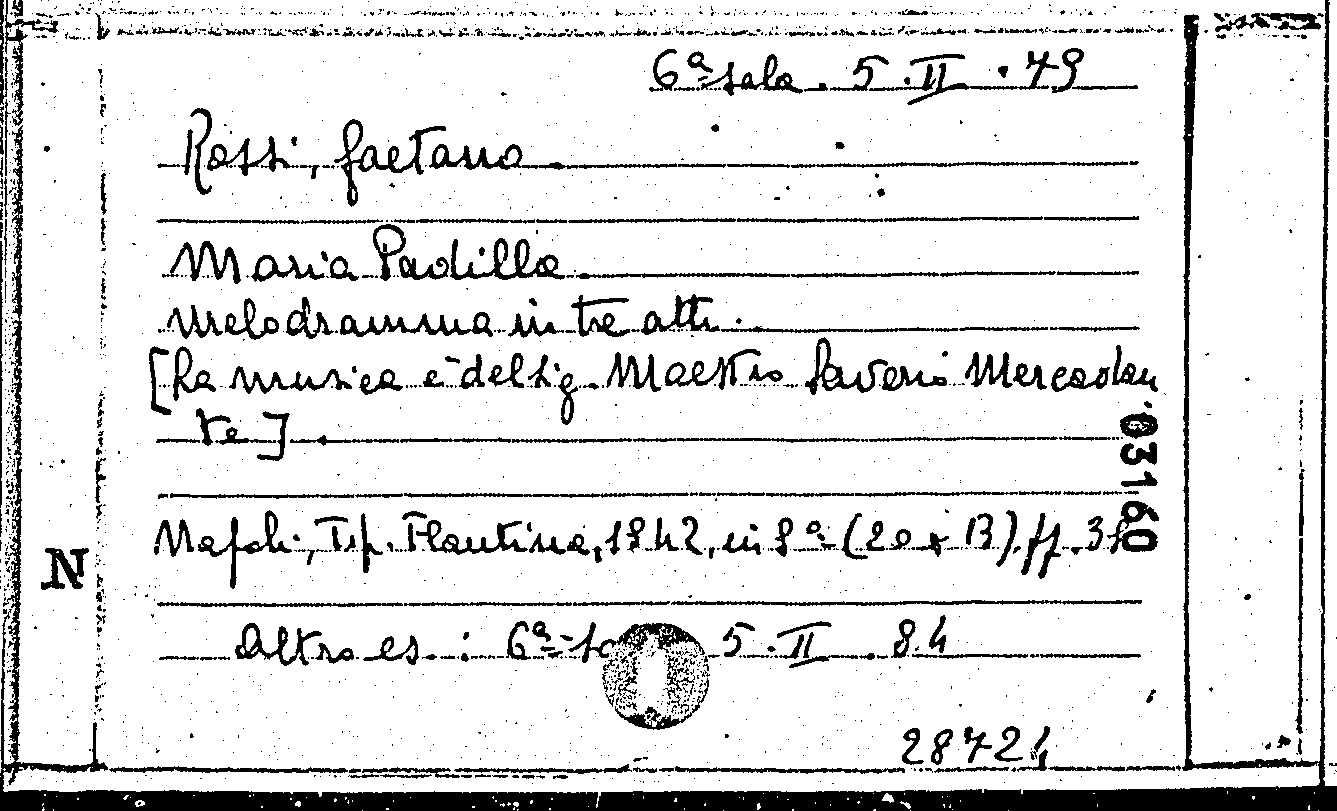 6ª sala. 5.II.79
Rossi, Gaetano.
Maria Padilla.
Melodramma in tre atti.
[La musica è del Sig. Maestro Saverio Mercadan
te].
03160
Napoli, Tip. Flautina, 1842, in 8º (20 x 13). ff.
N
Altro es. : 6ª 5.II.84
28724